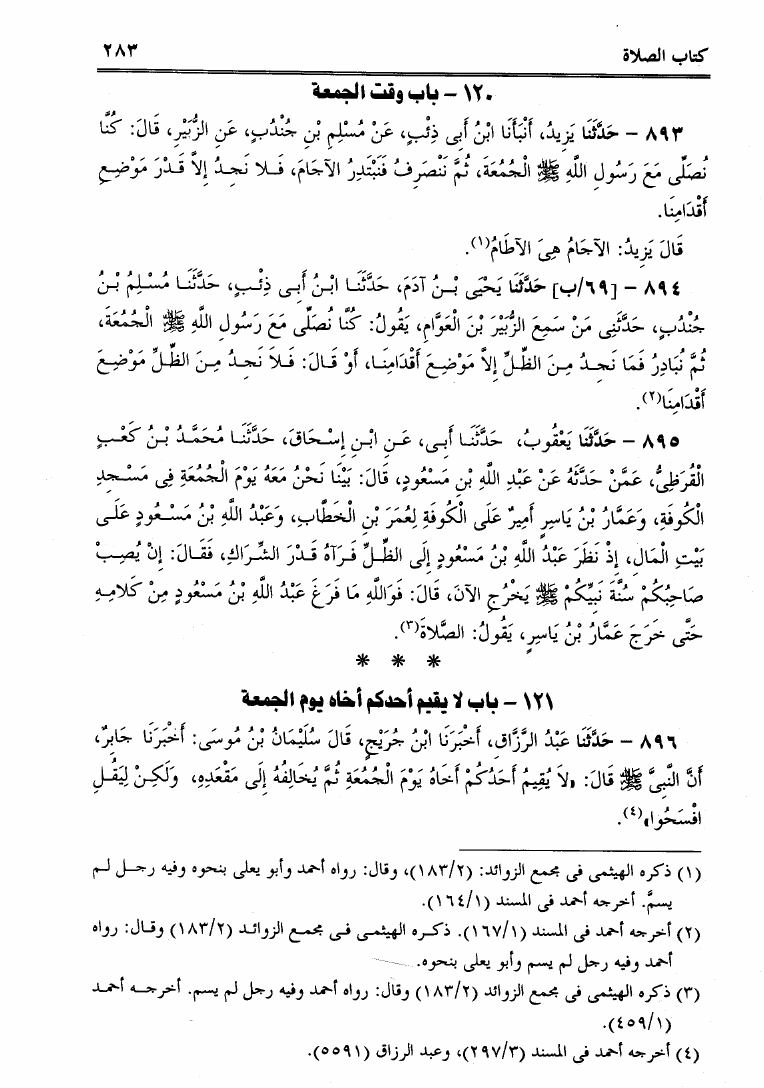 كتاب الصلاة ٢٨٣
١٢٠ - باب وقت الجمعة
٨٩٣ - حَدَّثَنَا يَزِيدُ، أَنْبَأَنَا ابْنُ أَبِى ذِئْبٍ، عَنْ مُسْلِمِ بْنِ جُنْدُبٍ، عَنِ الزُّبَيْرِ، قَالَ: كُنَّا
نُصَلِّى مَعَ رَسُولِ اللَّهِ ﷺ الْجُمُعَةَ، ثُمَّ نَنْصَرِفُ فَنَبْتَدِرُ الآجَامَ، فَلا نَجدُ إِلاَّ قَدْرَ مَوْضِعِ
أَقْدَامِنَا.
قَالَ يَزِيدُ: الآجَامُ هِىَ الآطَامُ(١).
٨٩٤ - [٦٩/ب] حَدَّثَنَا يَحْيَى بْنُ آدَمَ، حَدَّثَنَا ابْنُ أَبِى ذِئْبٍ، حَدَّثَنَا مُسْلِمُ بْنُ
جُنْدُبٍ، حَدَّثَنِى مَنْ سَمِعَ الزُّبَيْرَ بْنَ الْعَوَّامِ، يَقُولُ: كُنَّا نُصَلِّى مَعَ رَسُولِ اللَّهِ ﷺ الْجُمُعَةَ،
ثُمَّ نُبَادِرُ فَمَا نَجدُ مِنَ الظِّلِّ إِلاَّ مَوْضِعَ أَقْدَامِنَا، أَوْ قَالَ: فَلاَ نَجدُ مِنَ الظِّلِّ مَوْضِعَ
أَقْدَامِنَا(٢).
٨٩٥ - حَدَّثَنَا يَعْقُوبُ، حَدَّثَنَا أَبِى، عَنِ ابْنِ إِسْحَاقَ، حَدَّثَنَا مُحَمَّدُ بْنُ كَعْبٍ
الْقُرَظِىُّ، عَمَّنْ حَدَّثَهُ عَنْ عَبْدِ اللَّهِ بْنِ مَسْعُودٍ، قَالَ: بَيْنَا نَحْنُ مَعَهُ يَوْمَ الْجُمُعَةِ فِى مَسْجدِ
الْكُوفَةِ، وَعَمَّارُ بْنُ يَاسِرٍ أَمِيرٌ عَلَى الْكُوفَةِ لِعُمَرَ بْنِ الْخَطَّابِ، وَعَبْدُ اللَّهِ بْنُ مَسْعُودٍ عَلَى
بَيْتِ الْمَالِ، إِذْ نَظَرَ عَبْدُ اللَّهِ بْنُ مَسْعُودٍ إِلَى الظِّلِّ فَرَآهُ قَدْرَ الشِّرَاكِ، فَقَالَ: إِنْ يُصِبْ
صَاحِبُكُمْ سُنَّةَ نَبِيِّكُمْ ﷺ يَخْرُجِ الآنَ، قَالَ: فَوَاللَّهِ مَا فَرَغَ عَبْدُ اللَّهِ بْنُ مَسْعُودٍ مِنْ كَلامِهِ
حَتَّى خَرَجَ عَمَّارُ بْنُ يَاسِرٍ، يَقُولُ: الصَّلاةَ(٣).
* * *
١٢١ - باب لا يقيم أحدكم أخاه يوم الجمعة
٨٩٦ - حَدَّثَنَا عَبْدُ الرَّزَّاقِ، أَخْبَرَنَا ابْنُ جُرَيْجٍ، قَالَ سُلَيْمَانُ بْنُ مُوسَى: أَخْبَرَنَا جَابِرٌ،
أَنَّ النَّبِىَّ ﷺ قَالَ: «لاَ يُقِيمُ أَحَدُكُمْ أَخَاهُ يَوْمَ الْجُمُعَةِ ثُمَّ يُخَالِفُهُ إِلَى مَقْعَدِهِ، وَلَكِنْ لِيَقُلِ
افْسَحُوا»(٤).
(١) ذكره الهيثمى فى مجمع الزوائد: (١٨٣/٢)، وقال: رواه أحمد وأبو يعلى بنحوه وفيه رجل لم
يسمَّ. أخرجه أحمد فى المسند (١٦٤/١).
(٢) أخرجه أحمد فى المسند (١٦٧/١). ذكره الهيثمى فى مجمع الزوائد (١٨٣/٢) وقال: رواه
أحمد وفيه رجل لم يسم وأبو يعلى بنحوه.
(٣) ذكره الهيثمى فى مجمع الزوائد (١٨٣/٢) وقال: رواه أحمد وفيه رجل لم يسم. أخرجه أحمد
(٤٥٩/١).
(٤) أخرجه أحمد فى المسند (٢٩٧/٣)، وعبد الرزاق (٥٥٩١).